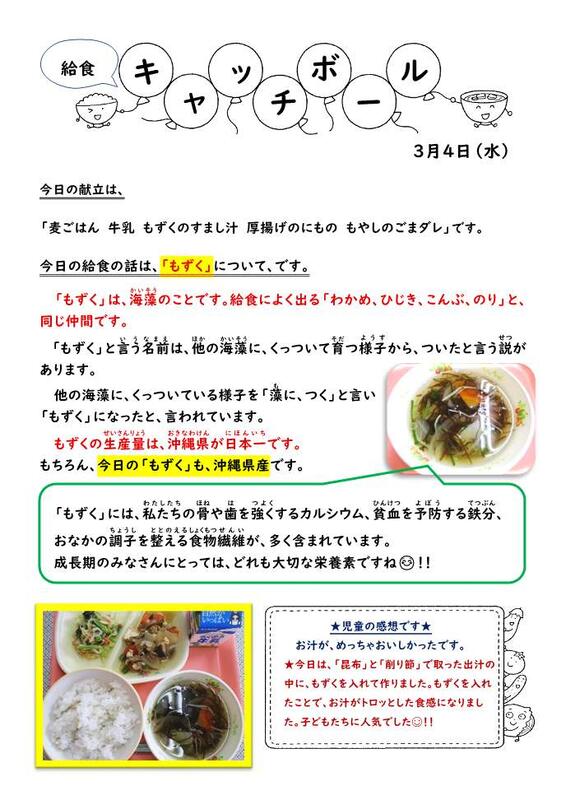 給食
キャッチボール
3月4日(水)
今日の献立は、
「麦ごはん 牛乳 もずくのすまし汁 厚揚げのにもの もやしのごまダレ」です。
今日の給食の話は、「もずく」について、です。
「もずく」は、海藻のことです。給食によく出る「わかめ、ひじき、こんぶ、のり」と、
同じ仲間です。
「もずく」と言う名前は、他の海藻に、くっついて育つ様子から、ついたと言う説が
あります。
他の海藻に、くっついている様子を「藻に、つく」と言い
「もずく」になったと、言われています。
もずくの生産量は、沖縄県が日本一です。
もちろん、今日の「もずく」も、沖縄県産です。
「もずく」には、私たちの骨や歯を強くするカルシウム、貧血を予防する鉄分、
おなかの調子を整える食物繊維が、多く含まれています。
成長期のみなさんにとっては、どれも大切な栄養素ですね😊!!
★児童の感想です★
お汁が、めっちゃおいしかったです。
★今日は、「昆布」と「削り節」で取った出汁の
中に、もずくを入れて作りました。もずくを入れ
たことで、お汁がトロッとした食感になりまし
た。子どもたちに人気でした☺!!